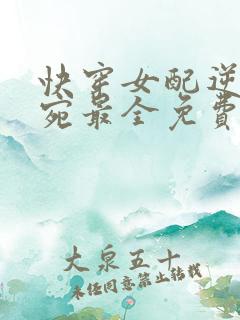 快穿女配逆
宛最全免費
大泉五十
未经同意禁止转载